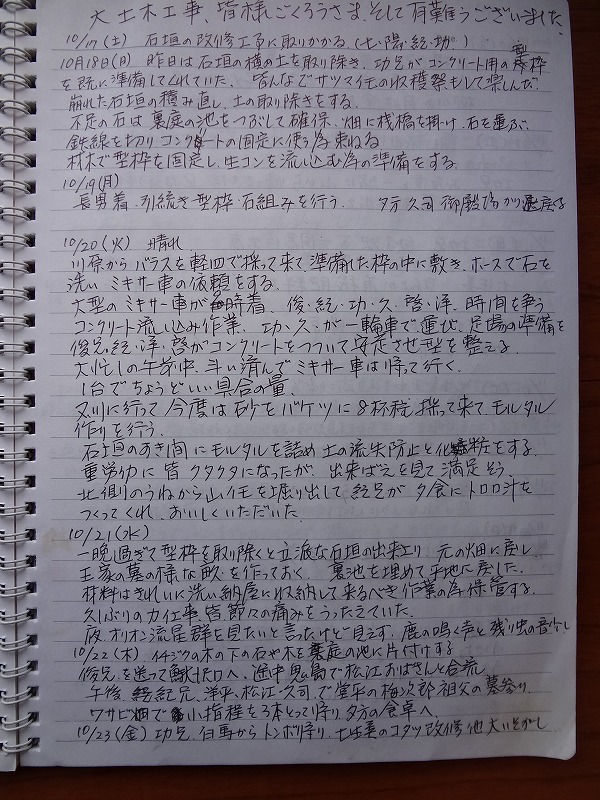 大土木工事、皆様ごくろうさま、そして有難うございました
10/17(土) 石垣の改修工事に取りかかる (七・陽・紘・功)
10月18日(日) 昨日は石垣の横の土を取り除き、功兄がコンクリート用の型枠
を既に準備してくれていた。皆んなでサツマイモの収穫祭もして楽しんだ。
崩れた石垣の積み直し、土の取り除きをする。
不足の石は裏庭の池をつぶして確保、畑に桟橋を掛け、石を運ぶ。
鉄線を切りコンクリートの固定に使う為束ねる
材木で型枠を固定し、生コンを流し込む為の準備をする。
10/19(月)
長男着、引続き型枠・石組みを行う。 夕方久司御殿場から
10/20(火) 晴れ
川原からバラスを軽四で採って来て、準備した枠の中に敷き、ホースで石を
洗い ミキサー車の依頼をする。
大型のミキサー車が 時着、俊・紘・功・久・啓・洋、時間を争う
コンクリート流し込み作業、功・久・が一輪車で運び、足場の準備を
俊兄・紘・洋・啓がコンクリートをつついて安定させ型を整える。
大忙しの午前中、 済んでミキサー車は帰って行く。
1台でちょうどいい具合の量。
又川に行って今度は砂をバケツに8杯程 採って来て モルタル
作りを行う。
石垣のすき間にモルタルを詰め土の流失防止と化粧をする。
重労仂に皆クタクタになったが、出来ばえを見て満足そう。
北側のうねから山イモを堀り出して 紘兄が夕食にトロロ汁を
つくってくれ、おいしくいただいた。
10/21(水)
一晩過ぎて型枠を取り除くと立派な石垣の出来上り 元の畑に戻し
王家の墓の様な畝を作っておく。裏池を埋めて平地に戻した。
材料はきれいに洗い納屋に収納して来るべき作業の為保管する。
久しぶりの力仕事、皆節々の痛みをうったえていた。
夜、オリオン流星群を見たいと言ったけど見えず、鹿の鳴く声と残り虫の音少し
10/22(木) イチジクの木の下の石や木を裏庭の池に片付けする
俊兄を送って 口へ、途中 島で松江おばさんと合流
午後、紘兄、洋平、松江、久司で堂平の梅次郎祖父の墓参り、
ワサビ畑で小指程を3本とって帰り夕方の食卓へ
10/23(金) 功兄、白馬からトンボ帰り、 のコタツ改修他大いそがし